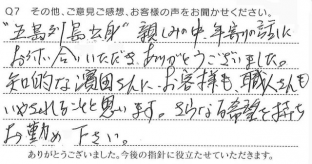 Q7 その他、ご意見ご感想、お客様の声をお聞かせください。
"五島列島出身" 親しみの中、年寄りの話に
お付い合いいただき、ありがとうございました。
知的な濱田さんに、お客様も、職人さんも
いやされることと思います。さらなる希望を持ち
お勤め下さい。
ありがとうございました。今後の指針に役立たせていただきます。